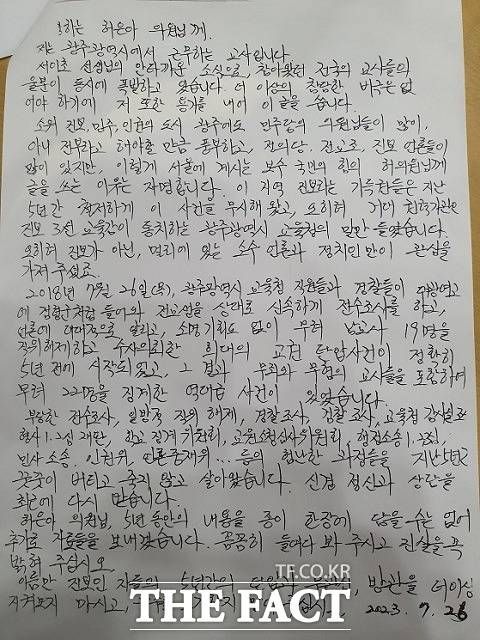 존경하는 허은아 의원님께.
저는 광주광역시에서 근무하는 교사입니다
서이초 선생님의 안타까운 소식으로, 참아왔던 전국의 교사들의
울분이 동시에 폭발하고 있습니다. 더 이상의 참담한 비극은 없
어야 하기에 저 또한 용기를 내어 이 글을 씁니다.
소위 진보, 민주, 인권의 도시 광주에도 민주당의 의원님들이 많이,
아니 전부라고 해야할 만큼 풍부하고, 정의당, 전교조, 진보 언론들이
많이 있지만, 이렇게 서울에 계시는 보수 국민의 힘의 허의원님께
글을 쓰는 이유는 자명합니다. 이 지역 진보라는 가득한들은 지난
5년간 철저하게 이 사건을 무시해 왔고, 오히려 거대
진보 3선 교육감이 통치하는 광주광역시 교육청의 말만 들었습니다.
오히려 진보가 아닌, 멀리에 있는 소수 언론과 정치인만이 관심을
가져 주셨죠.
2018년 7월 26일(목), 광주광역시 교육청 직원들과 경찰들이 대광여고
에 점령군처럼 들어와 전교생을 상대로 신속하게 전수조사를 하고,
언론에 대대적으로 알리고, 소명 기회도 없이 무려 남교사 19명을
직위해제하고 수사의뢰한 희대의 교권 탄압사건이 정확히
5년 전에 시작되었고, 그 결과 무죄와 무혐의 교사들을 포함하여
무려 22명을 징계한 역대급 사건이 있었습니다.
부당한 전수조사, 일방적 직위 해제, 경찰조사, 검찰 조사, 교육청 감사실조
형사 1.2심 재판, 학교 징계 위원회, 교원소청심사위원회, 행정소송 1.2심,
민사 소송, 인권위, 언론중재위... 등의 험난한 과정들을 지난 5년간
꿋꿋이 버티고 죽지 않고 살아왔습니다. 신경 정신과 상담을
최근에 다시 받습니다.
허은아 의원님, 5년 동안의 내용을 종이 한장에 담을 수는 없어
추가로 자료들을 보내겠습니다. 꼼꼼히 들여다 봐 주시고 진실을 꼭
밝혀 주십시오.
이름만 진보인 자들의 5년간의 방관을 더이상
지켜보지 마시고, 2023. 7. 26
TF.CO.KR
THE FACT